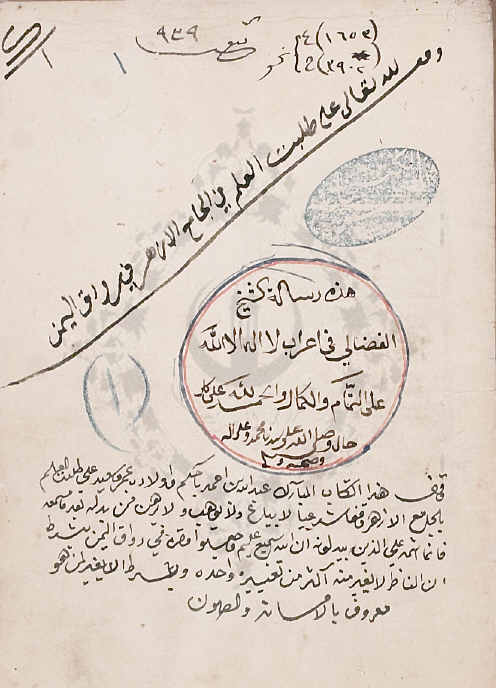 ٩٣٩
٤ (١٦٥٣)
نحو
وقف لله تعالى على طلبت العلم في الجامع الازهر في رواق اليمن
هذه رسالة الشيخ
الفضالي في اعراب لا اله الا الله
على التمام والكمال والحمد لله على كل
حال وصلى الله على سيدنا محمد وعلى اله
وصحبه وسلم
هذا الكتاب المبارك عبد الله بن احمد على طلبت العلم
بالجامع الازهر شرعيا لا يباع ولا يوهب ولا يرهن فمن بدله بعد ما سمعه
فانما اثمه على الذين يبدلونه ان الله سميع عليم في رواق اليمن بشرط
ان الناظر لا يغير منه اكثر من تغييرة واحده وبشرط الا يغير لمن هو
معروف بالامانة والصون